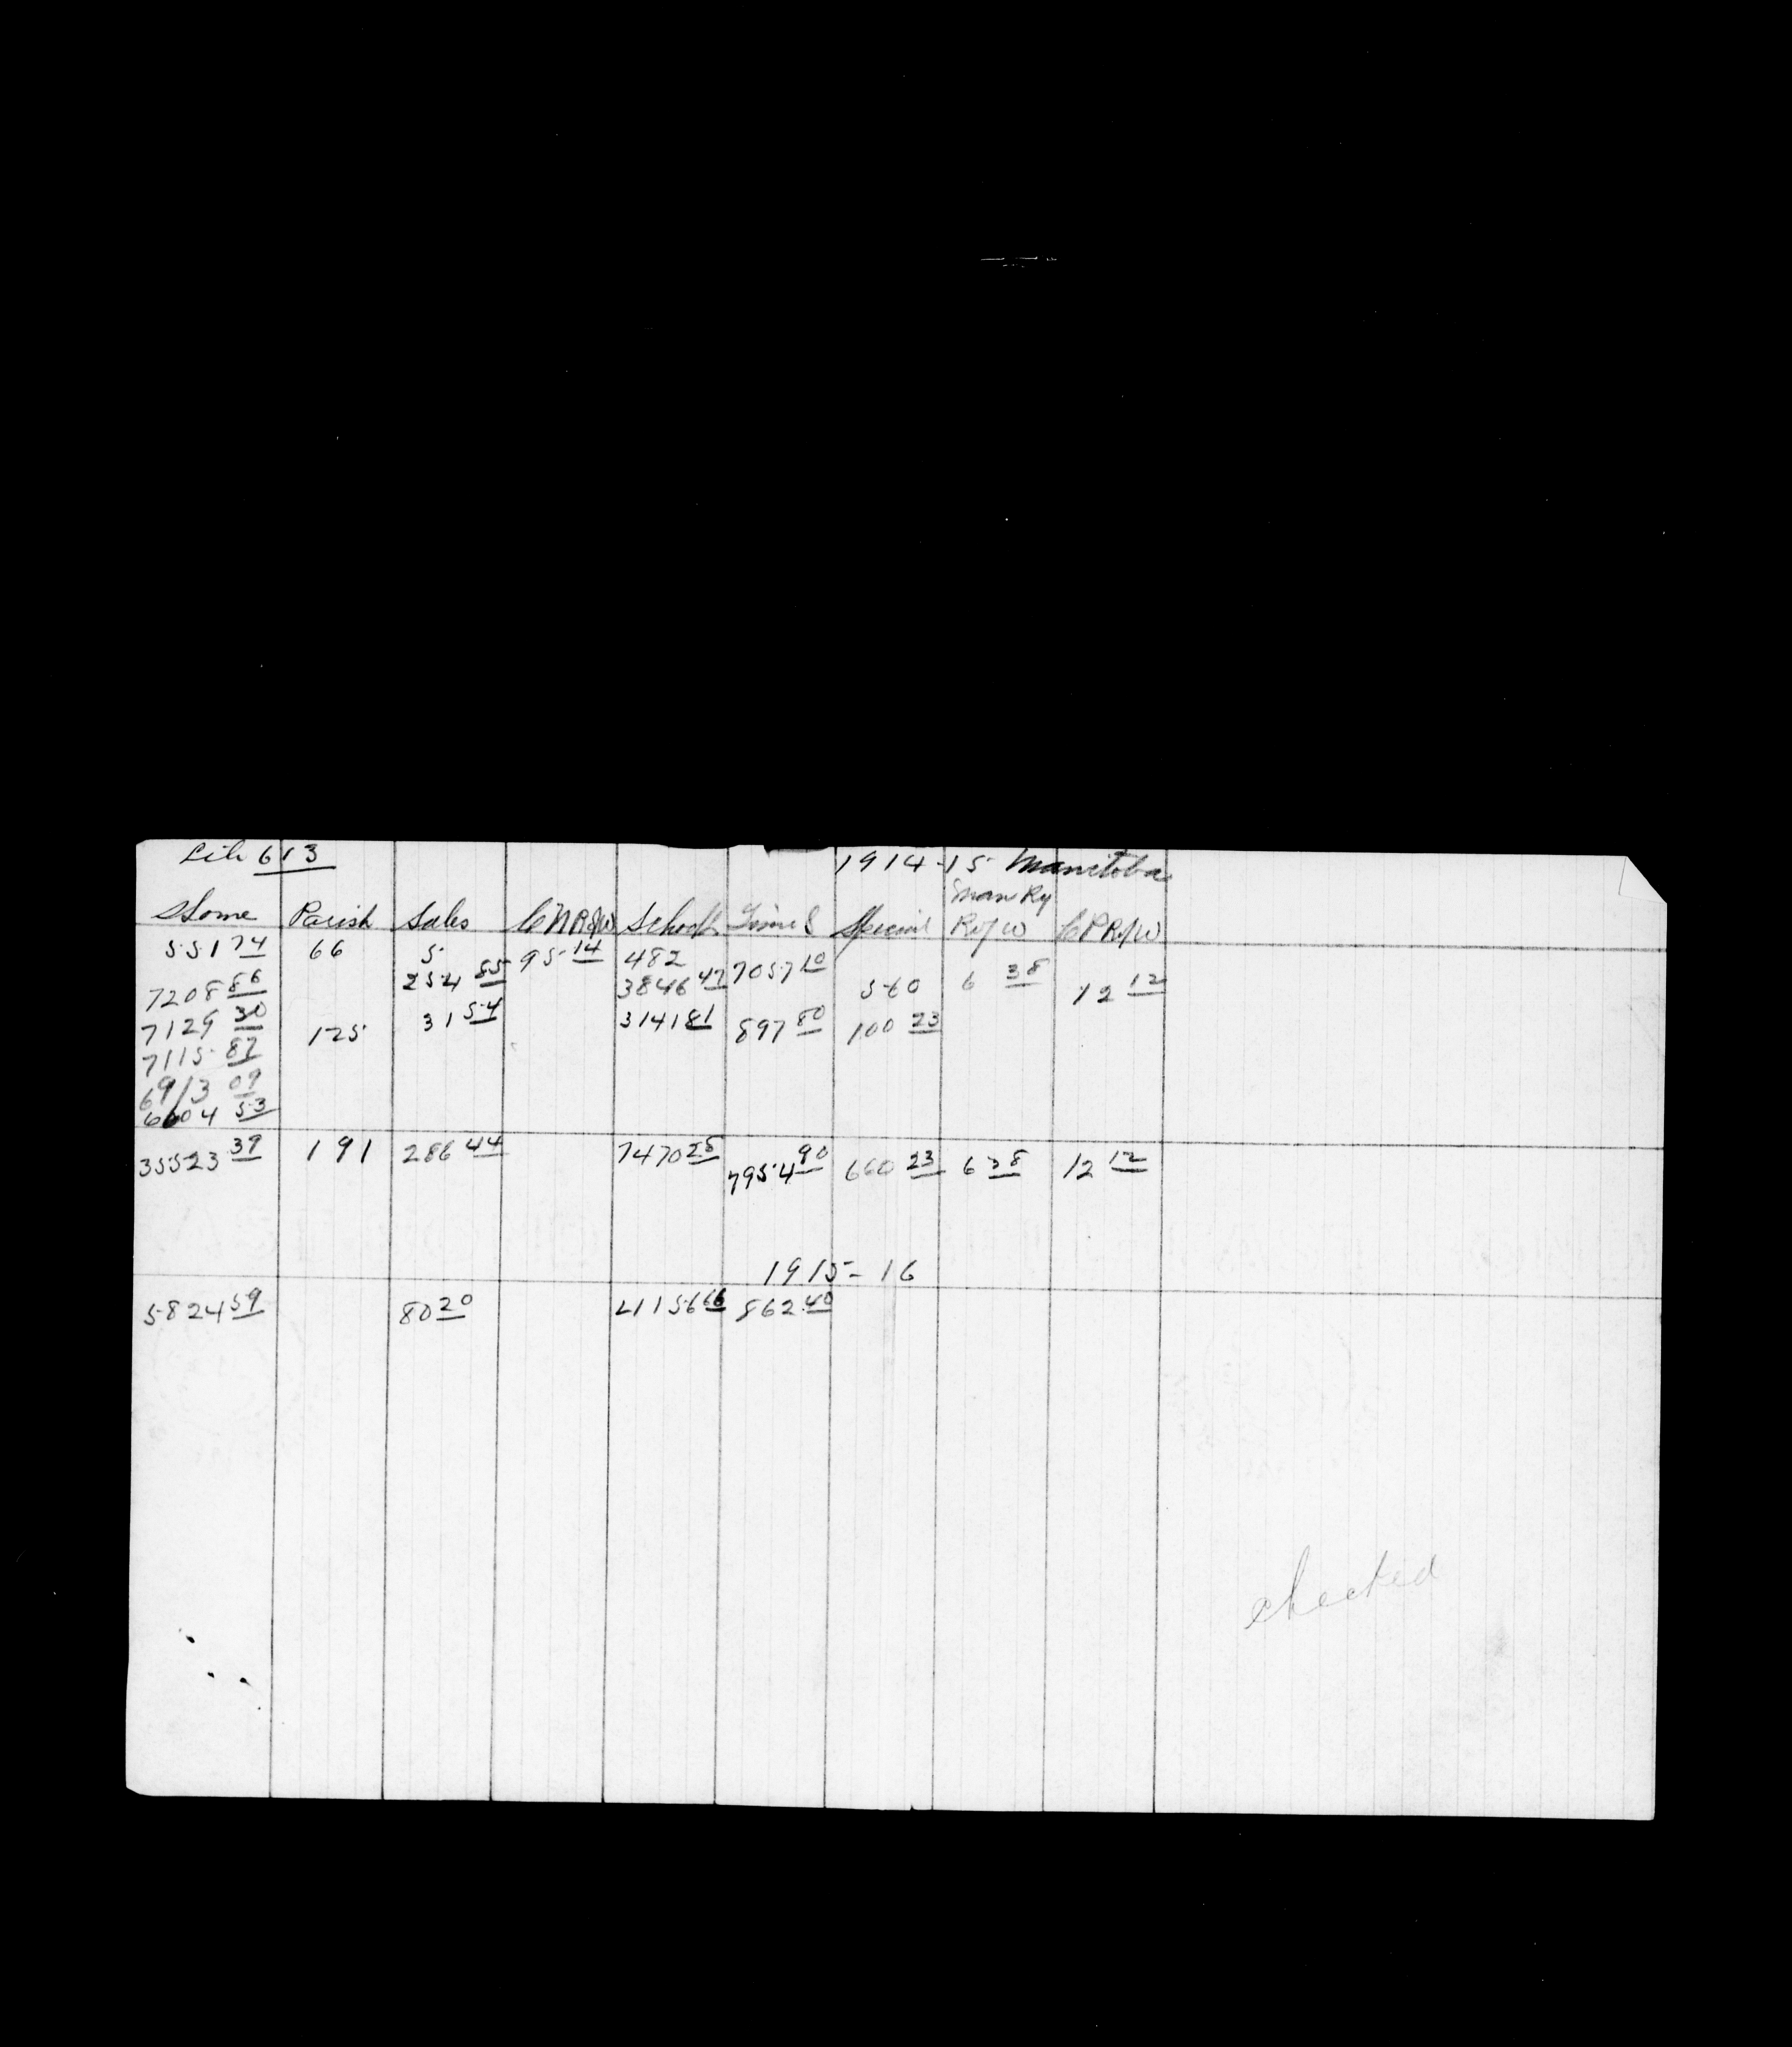 Lib 613
1914-15 Manitoba
Home Parish Sales CNR R/W School Timel Special Man Ry R/W CPR R/W
551 74 66 5 95 14 482 7057 10
7208 86 254 85 3846 47 560 6 38 12 12
7129 30 125 31 54 3141 81 897 80 100 23
7115 87
6913 09
6604 53
35523 39 191 286 44 7470 28 7954 90 660 23 6 38 12 12
1915-16
5824 59 80 20 4115 6 66 862 40
checked